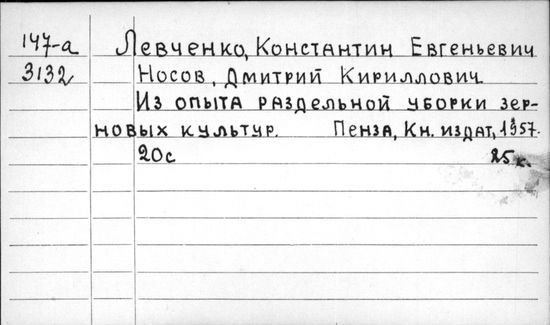 147-а Левченко, Константин Евгеньевич
3132 Носов, Дмитрий Кириллович.
Из опыта раздельной уборки зер-
новых культур. Пенза, Кн. издат, 1957.
20с 25к.